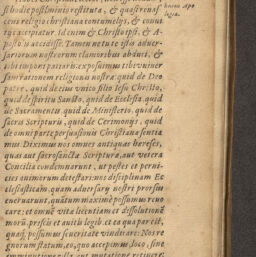 si hodie postliminio restituta, & quasi
cens religio christiana contumelijs, & convi
tijs accipiatur. Id enim & Christo ipsi, & A-
postolis accidisse. Tamen ne tu te istis adver-
sariorum nostrorum clamoribus abduci, &
tibi imponi patiaris: exposuimus tibi univer
sam rationem religionis nostræ: quid de Deo
patre, quid de eius unico filio Iesu Christo,
quid de spiritu Sancto, quid de Ecclesia, quid
de Sacramentis, quid de Ministerio, quid de
sacra Scriptura, quid de Ceremonijs, quid
de omni parte persuasionis Christianæ sentia
mus. Diximus nos omnes antiquas hæreses,
quas aut sacrosancta Scriptura, aut vetera
Concilia condemnarunt, ut pestes et perni-
cies animorum detestari: nos disciplinam Ec
clesiasticam, quam adversarij nostri prorsus
enervarunt, quàm maxime possumus revo
care: et omnē vitæ licentiam et dissolutionē
morū, priscis et avitis legib. et ea qua par est,
quaq́; possumus severitate vindicare: Nos re
gnorum statum, eo, quo accepimus loco, sine